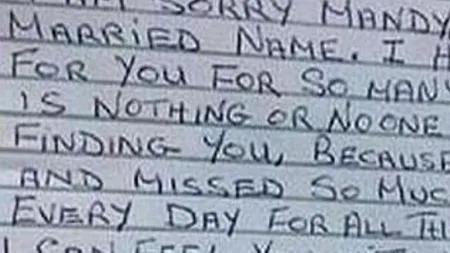 SORRY MANDY
MARRIED NAME. I H
FOR YOU FOR SO MANY
IS NOTHING OR NOONE
FINDING YOU, BECAUSE
AND MISSED SO MUC
EVERY DAY FOR ALL TH
I CAN FEEL